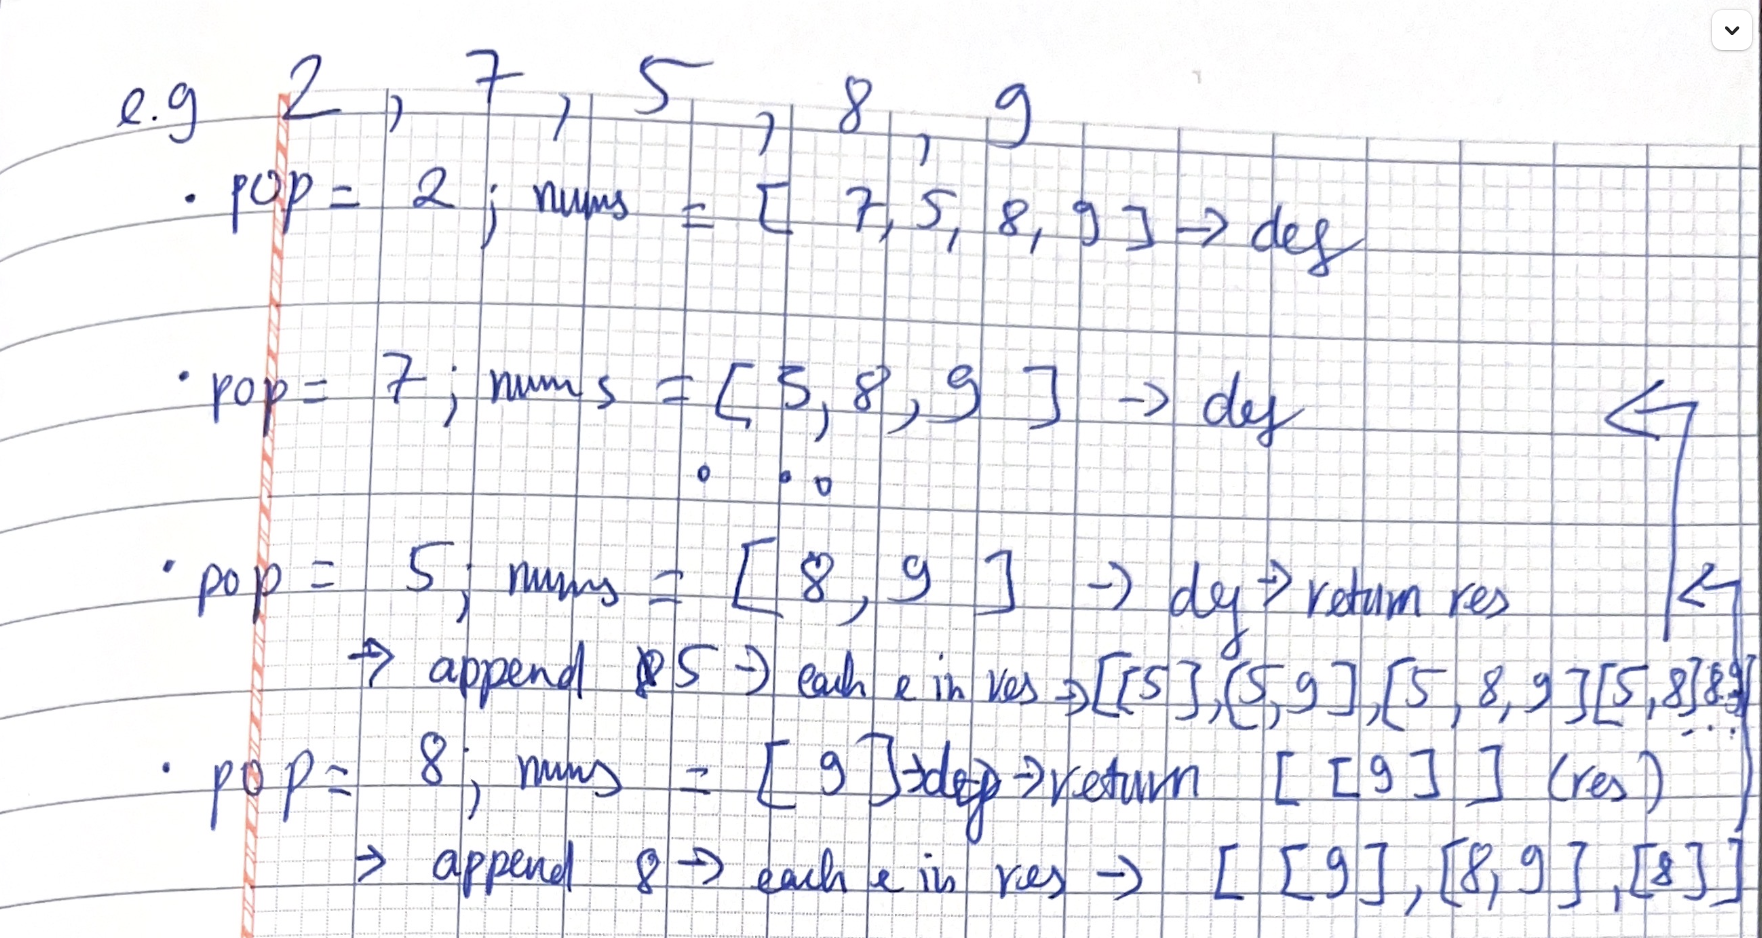 e.g 2 , 7 , 5 , 8 , 9
· pop = 2 ; nums = [ 7, 5, 8, 9 ] → def
· pop = 7 ; nums = [ 5, 8, 9 ] → def
· pop = 5 ; nums = [ 8, 9 ] → def → return res
→ append 5 → each e in res → [[5], [5, 9], [5, 8, 9] [5, 8]
...
· pop = 8 ; nums = [ 9 ] → def → return [ [9] ] (res)
→ append 8 → each e in res → [ [9], [8, 9], [8] ]